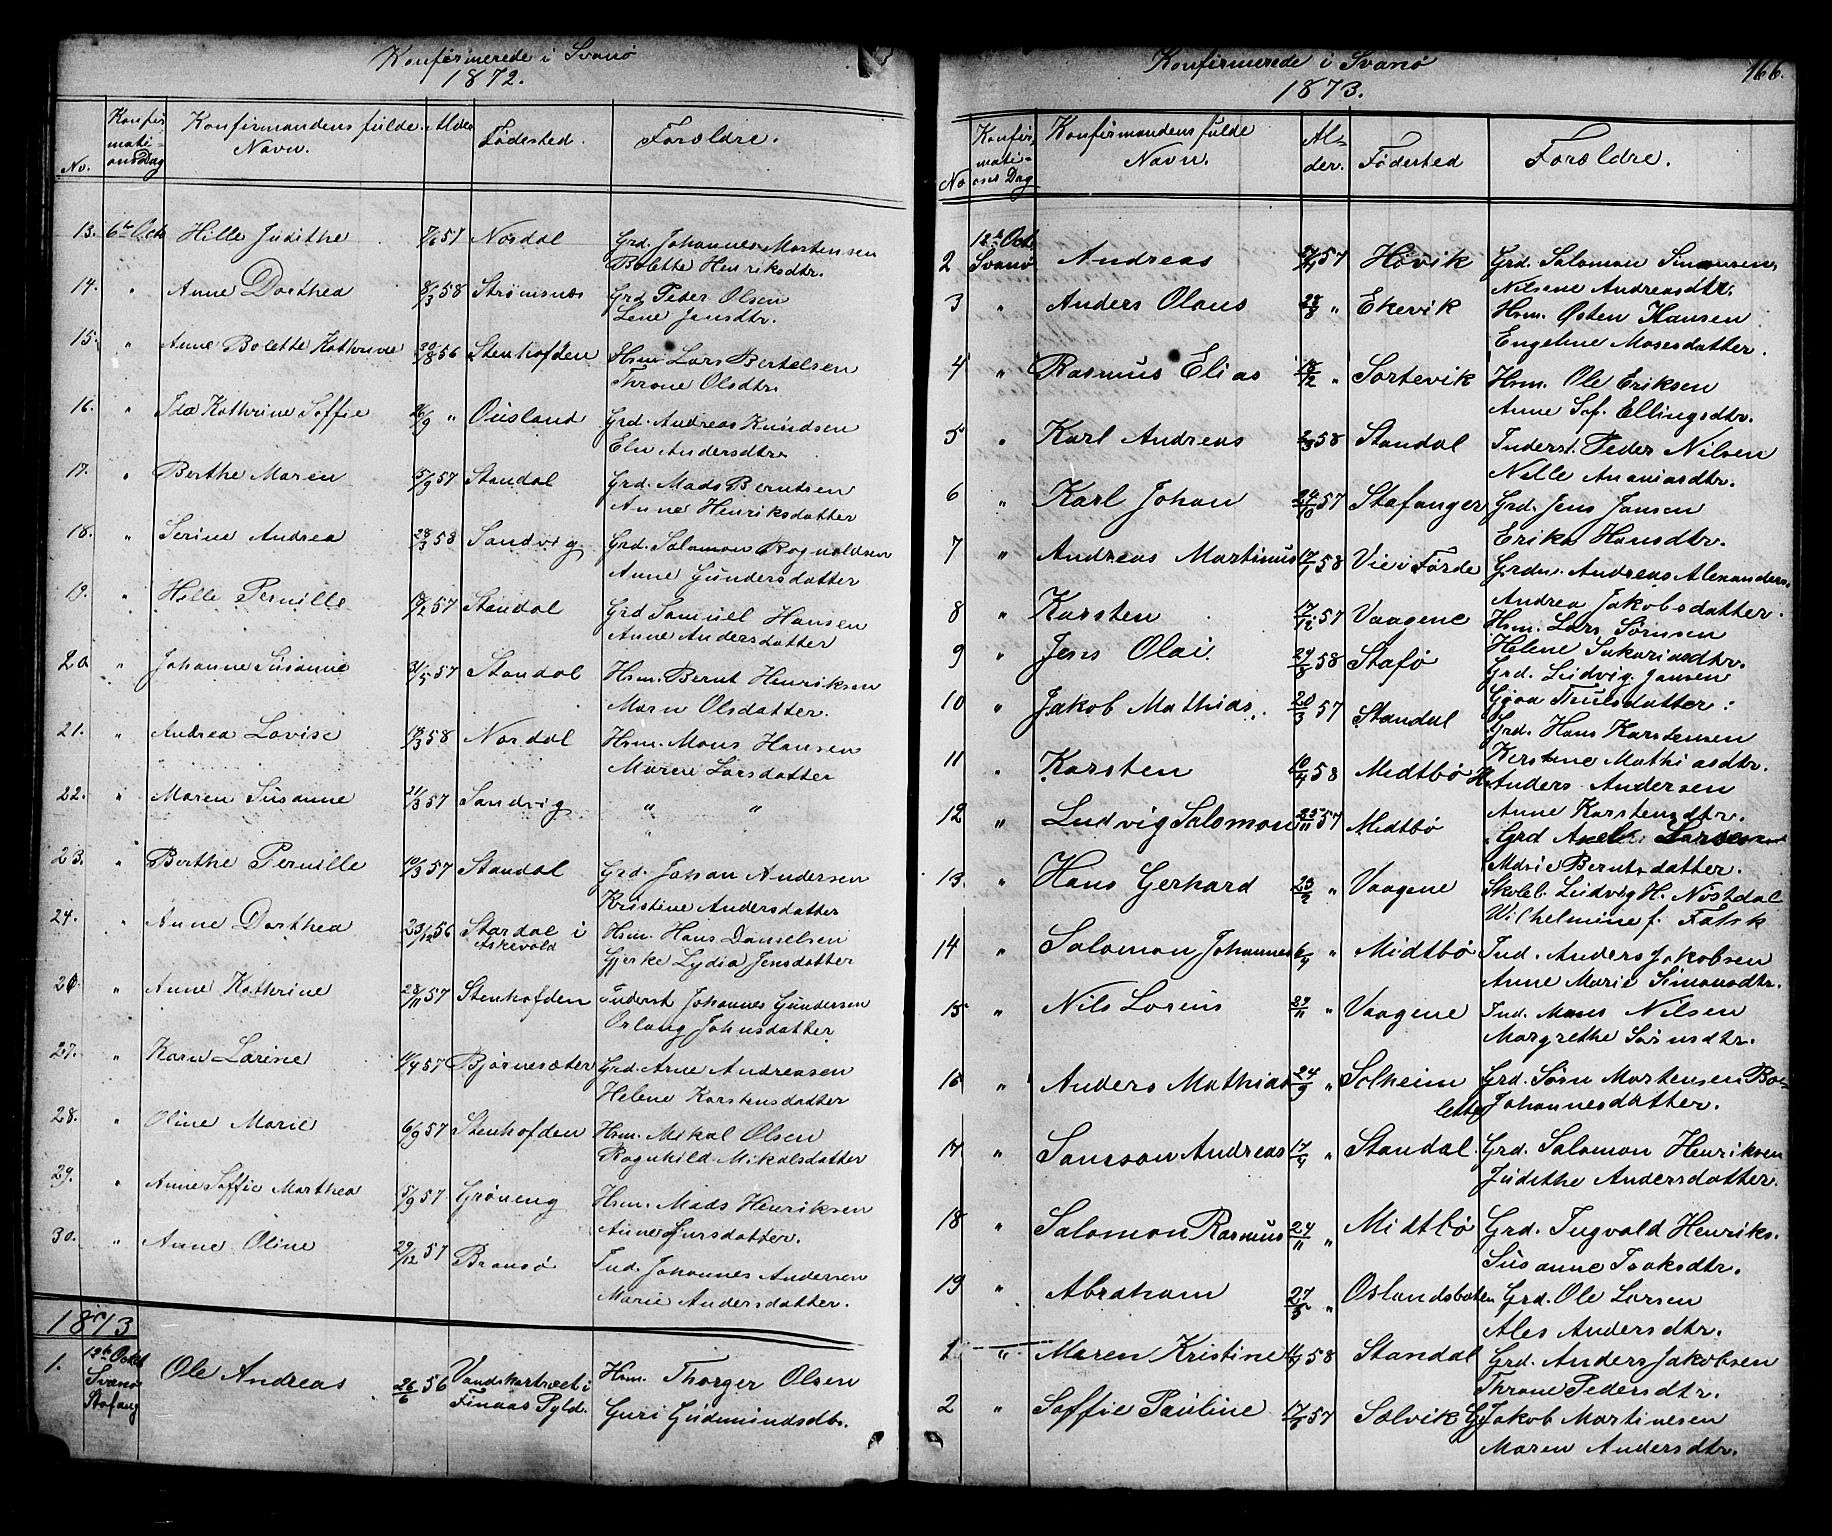 Konfirmerede i Svanø
1872.
No. Konfirmationsdag Konfirmandens fulde Navn. Alder Fødested. Forældre.
13. 6te Octb Hille Judithe 7/6 57 Nordal Grd. Johannes Mortensen
Bolette Henriksdtr.
14. " Anne Dorthea 8/3 58 Strømsnæs Grd. Peder Olsen
Lene Jensdtr.
15. " Anne Bolette Kathrine 30/8 56 Stenhofden Hsm. Lars Bertelsen
Throne Olsdtr.
16. " Kathrine Soffie 26/9 " Ousland Grd. Andreas Knudsen
Eln Andersdtr.
17. " Berthe Maren 5/9 57 Standal Grd. Mads Berntsen
Anne Henriksdatter
18. " Serine Andrea 28/3 58 Sandvig Grd. Salomon Rognaldsen
Anne Gundersdatter
19. " Hille Pernille 18/2 57 Standal Grd Samuel Hansen
Anne Andersdatter
20 " Johanne Susanne 31/5 57 Standal Hsm. Bernt Henriksen
Maru Olsdatter.
21. " Andrea Lovise 19/3 58 Nordal Hsm. Mons Hansen
Maren Larsdatter
22. " Maren Susanne 21/3 57 Sandvig " "
"
23. " Berthe Pernille 10/3 57 Standal Grd. Johan Andersen
Kristine Andersdatter
24. " Anne Dorthea 23/12 56 Stardal i Askevold Hsm. Hans Danielsen
Gjerke Lydia Jensdatter
26. " Anne Kathrine 28/11 57 Stenhofden Inderst Johannes Gundersen
Orlaug Johnsdatter
27. " Karn Larine 11/4 57 Bjørnesæter Grd. Arne Andreasen
Helene Karstensdatter
28. " Oline Marie 6/9 57 Stenhofden Hsm. Mikal Olsen
Ragnhild Mikalsdatter
29. " Anne Soffie Marthea 5/9 57 Grøneng Hsm. Mads Henriksen
Anne Jursdatter.
30. " Anne Oline 29/12 57 Bransø Ind. Johannes Andersen
Marie Andersdatter.
1873
1. 12te Octob Svanø Stafang Ole Andreas 26/6 56 i Hsm. Thorger Olsen
Guri Gudmundsdtr.
Konfirmerede i Svanø 166.
1873.
No Konfirmations Dag Konfirmandens fulde Navn. Alder. Fødested Forældre.
2 12te Octb Svanø Andreas 57 Høvik Grd. Salomon Simonsen
Nilsene Andreasdtr.
3 " Anders Olaus 28/8 " Ekevik Hsm. Østen Hansen
Engeline Mosesdatter.
4 " Rasmus Elias 18/12 " Sortevik Hsm. Ole Eriksen
Anne Sof. Ellingsdtr.
5 " Karl Andreas 58 Standal Inderst. Peder Nilsen
Nille Ananiasdtr.
6 " Karl Johan 24/10 57 Stafanger Grd. Jens Jansen
Erika Hansdtr.
7 " Andreas Martinus 17/1 58 Vie i Førde Grdm. Andreas Alexanders.
Andrea Jakobsdatter.
8 " Karsten 17/12 57 Vaagene Hsm. Lars Sørnsen
Helene Sakariasdtr.
9 " Jens Olai 29/8 58 Stafø Grd. Ludvig Jansen
Gjøa Trulsdatter.
10 " Jakob Mathias. 20/3 57 Standal Grd. Hans Karstensen
Kerstine Mathiasdtr.
11 " Karsten 10/4 58 Midtbø H. Anders Andersen
Anne Karstensdtr.
12 " Ludvig Salomon 25/11 57 Midtbø Grd
Marie Berntsdatter.
13. " Hans Gerhard 23/2 " Vaagene Skolel. Ludvig H. Nøstdal
Wilhelmine f. Falsk
14 " Salomon Johannes 6/4 " Midtbø Ind. Anders Jakobsen
Anne Marie Simonsdtr.
15 " Nils Lorens 29/11 " Vaagene Ind. Moses Nilsen
Margrethe Sørnsdtr.
16 " Anders Mathias 24/9 " Solheim Grd. Sørn Mortensen Bo-
lette Johannesdatter.
17 " Samson Andreas 17/4 " Standal Grd. Salomon Henriksen
Judithe Andersdatter.
18 " Salomon Rasmus 24/11 " Midtbø Grd. Ingvald Henriks.
Susanne Isaksdtr.
19 " Abraham 27/5 " Oslandsbotten Grd. Ole Larsen
Ales Andersdtr.
1 " Maren Kristine 58 Standal Grd. Anders Jakobsen
Throne Pedersdtr.
2 " Soffie Pauline 57 Solvik G Jakob Martinesen
Maren Andersdtr.